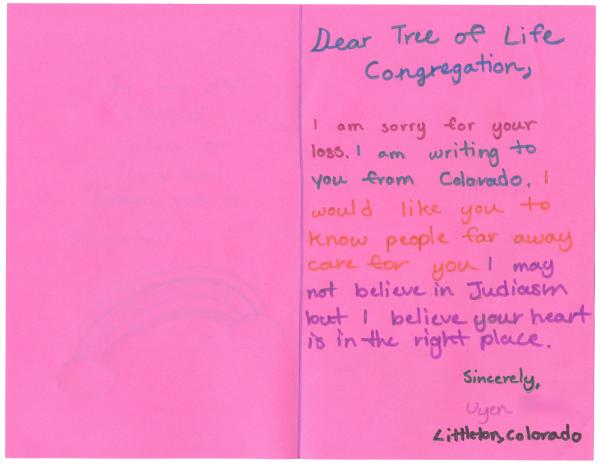 Dear Tree of Life
Congregation,
I am sorry for your
loss. I am writing to
you from Colorado. I
would like you to
know people far away
care for you I may
not believe in Judiasm
but I believe your heart
is in the right place.
Sincerely,
Uyen
Littleton, Colorado